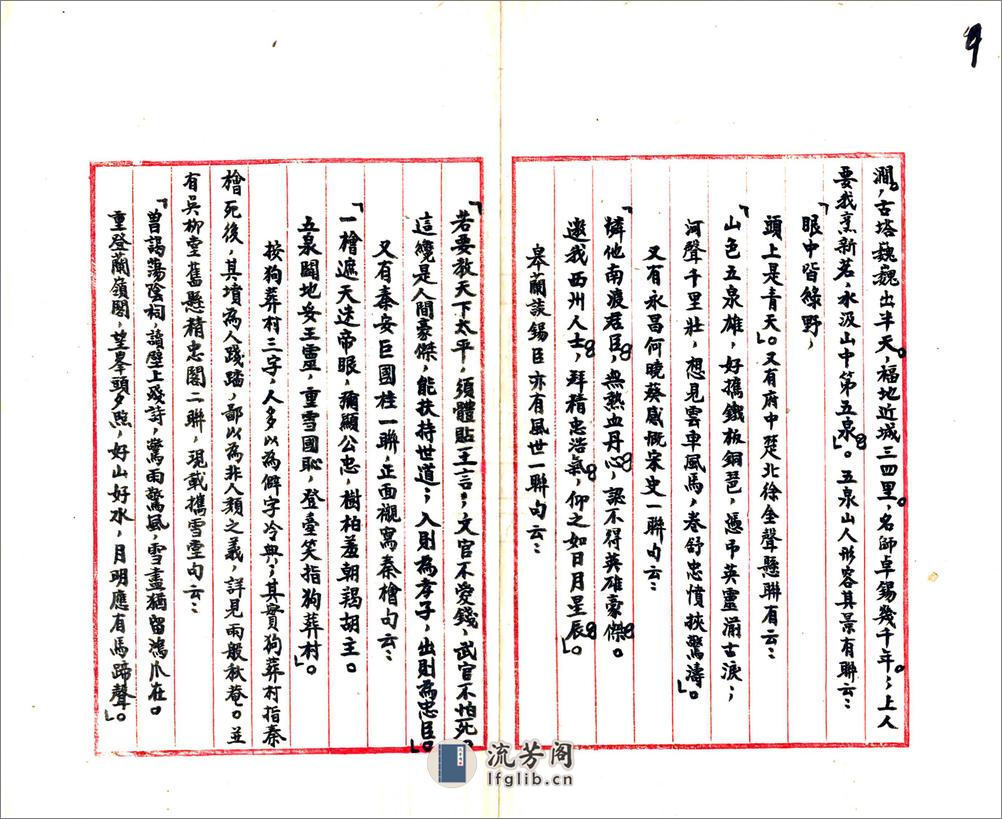 9
澗，古塔巍巍出半天，福地近城三四里，名師卓錫幾千年；上人
要我烹新茗，水汲山中第五泉」。五泉山人形容其景有聯云：
「眼中皆綠野，
頭上是青天」。又有府中楚北徐金聲懸聯有云：
「山色五泉雄，好攜鐵板銅琶，憑弔英靈湔古淚；
河聲千里壯，想見雲車風馬，卷舒忠憤挾驚濤」。
又有永昌何曉葵感慨宋史一聯句云：
「憐他南渡君臣，無熱血丹心，認不得英雄豪傑。
邀我西州人士，拜精忠浩氣，仰之如日月星辰」。
皋蘭談錫臣亦有風世一聯句云：
「若要教天下太平，須體貼王言：文官不愛錢，武官不怕死。
這纔是人間豪傑，能扶持世道；入則為孝子，出則為忠臣」。
又有秦安巨國桂一聯，正面襯寫秦檜句云：
「一檜遮天迷帝眼，彌顯公忠，樹柏羞朝謁胡主。
五泉闢地妥王靈，重雪國恥，登臺笑指狗葬村」。
按狗葬村三字，人多以為僻字冷典；其實狗葬村指秦
檜死後，其墳為人踐踏，鄙以為非人類之義，詳見兩般秋菴。並
有吳柳堂舊懸精忠閣二聯，現載攜雪堂句云：
「曾謁蕩陰祠，讀壁上殘詩，驚雨驚風，雪盡猶留鴻爪在。
重登蘭嶺閣，望峯頭夕照，好山好水，月明應有馬蹄聲」。
流芳阁
lfglib.cn